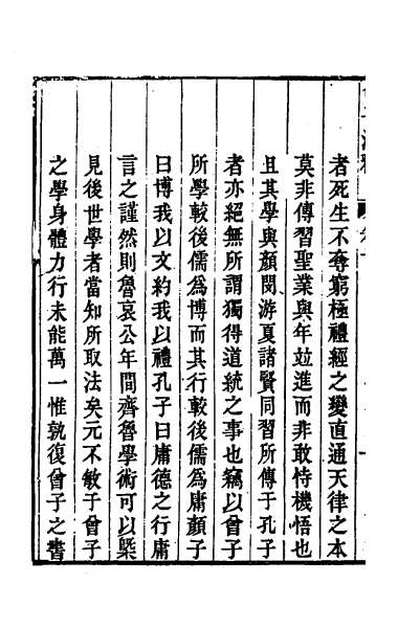 者死生不奪窮極禮經之變直通天律之本
莫非傳習聖業與年竝進而非敢恃機悟也
且其學與顏閔游夏諸賢同習所傳于孔子
者亦絕無所謂獨得道統之事也竊以曾子
所學較後儒爲博而其行較後儒爲庸顏子
曰博我以文約我以禮孔子曰庸德之行庸
言之謹然則魯哀公年間齊魯學術可以槩
見後世學者當知所取法矣元不敏于曾子
之學身體力行未能萬一惟孰復曾子之書